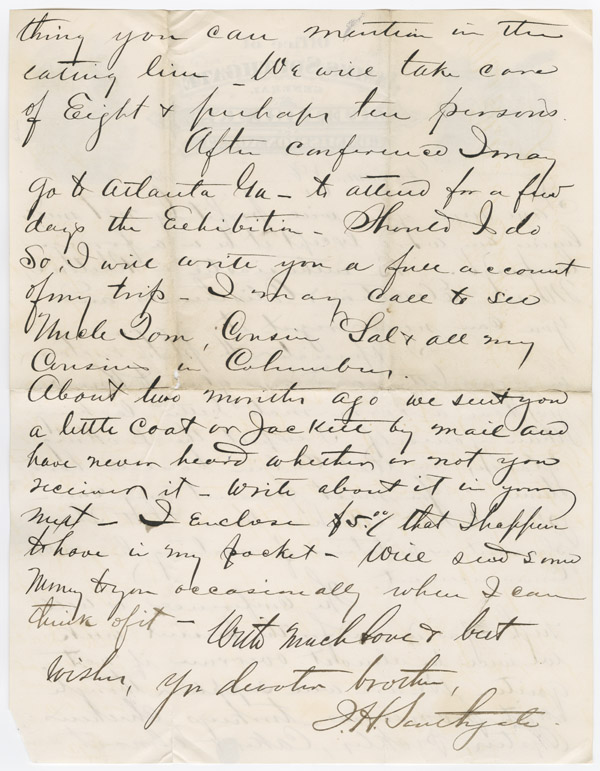 thing you can mention in the
eating line - We will take care
of Eight & perhaps ten persons.
After conference I may
go to Atlanta Ga - to attend for a few
days the Exhibition - Should I do
So, I will write you a full account
of my trip - I may call to see
Uncle Tom, Cousin Sal & all my
Cousins in Columbus.
About two months ago we sent you
a little Coat or Jackett by mail and
have never heard whether or not you
receiven it - write about it in your
next - I Enclose $5.00/ that I happen
to have in my pocket - Will send some
money to you occasionally when I can
think of it - With much love & best
wishes, Yr devoten brother,
J. H. Southgate.